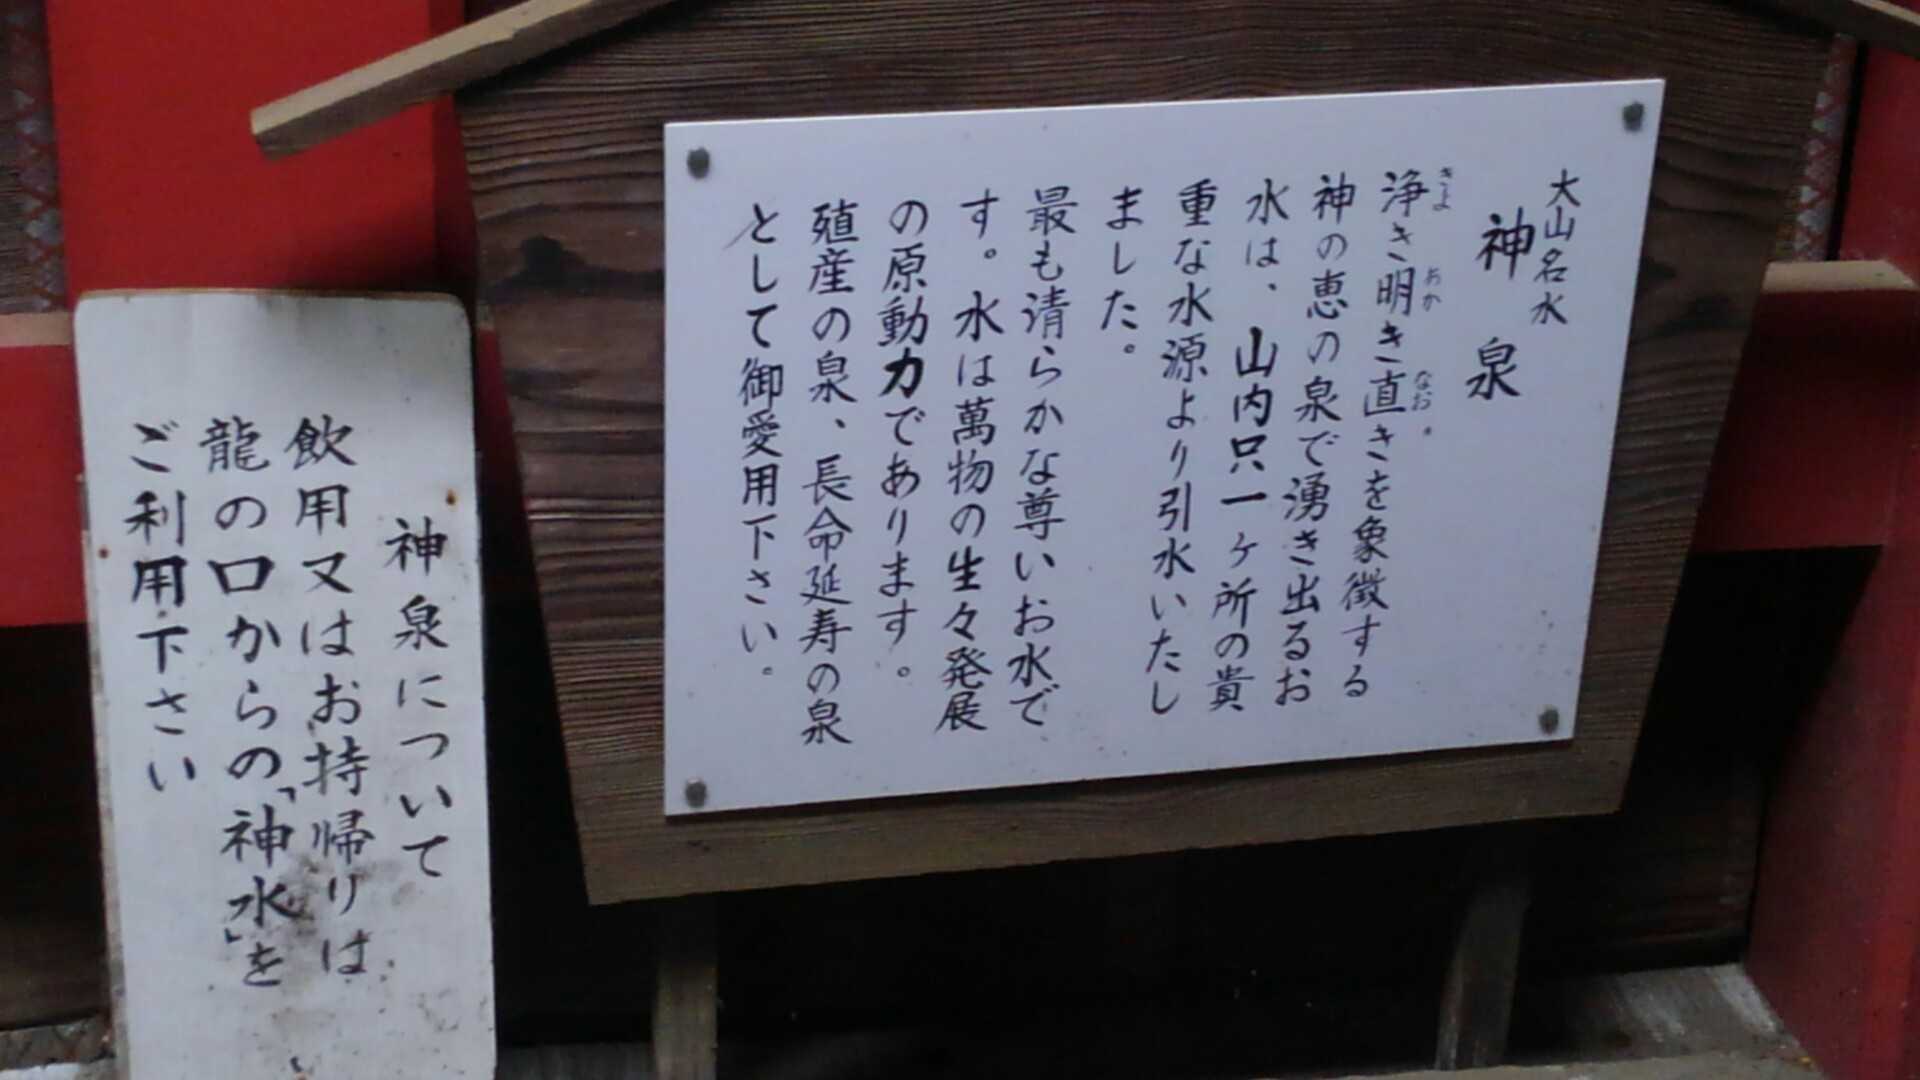 大山名水
神泉
浄き明き直きを象徴する
神の恵の泉で湧き出るお
水は、山内只一ヶ所の貴
重な水源より引水いたし
ました。
最も清らかな尊いお水で
す。水は萬物の生々発展
の原動力であります。
殖産の泉、長命延寿の泉
として御愛用下さい。
きよ
おか
なお
神泉について
飲用又はお持帰りは
龍の口からの「神水」を
ご利用下さい